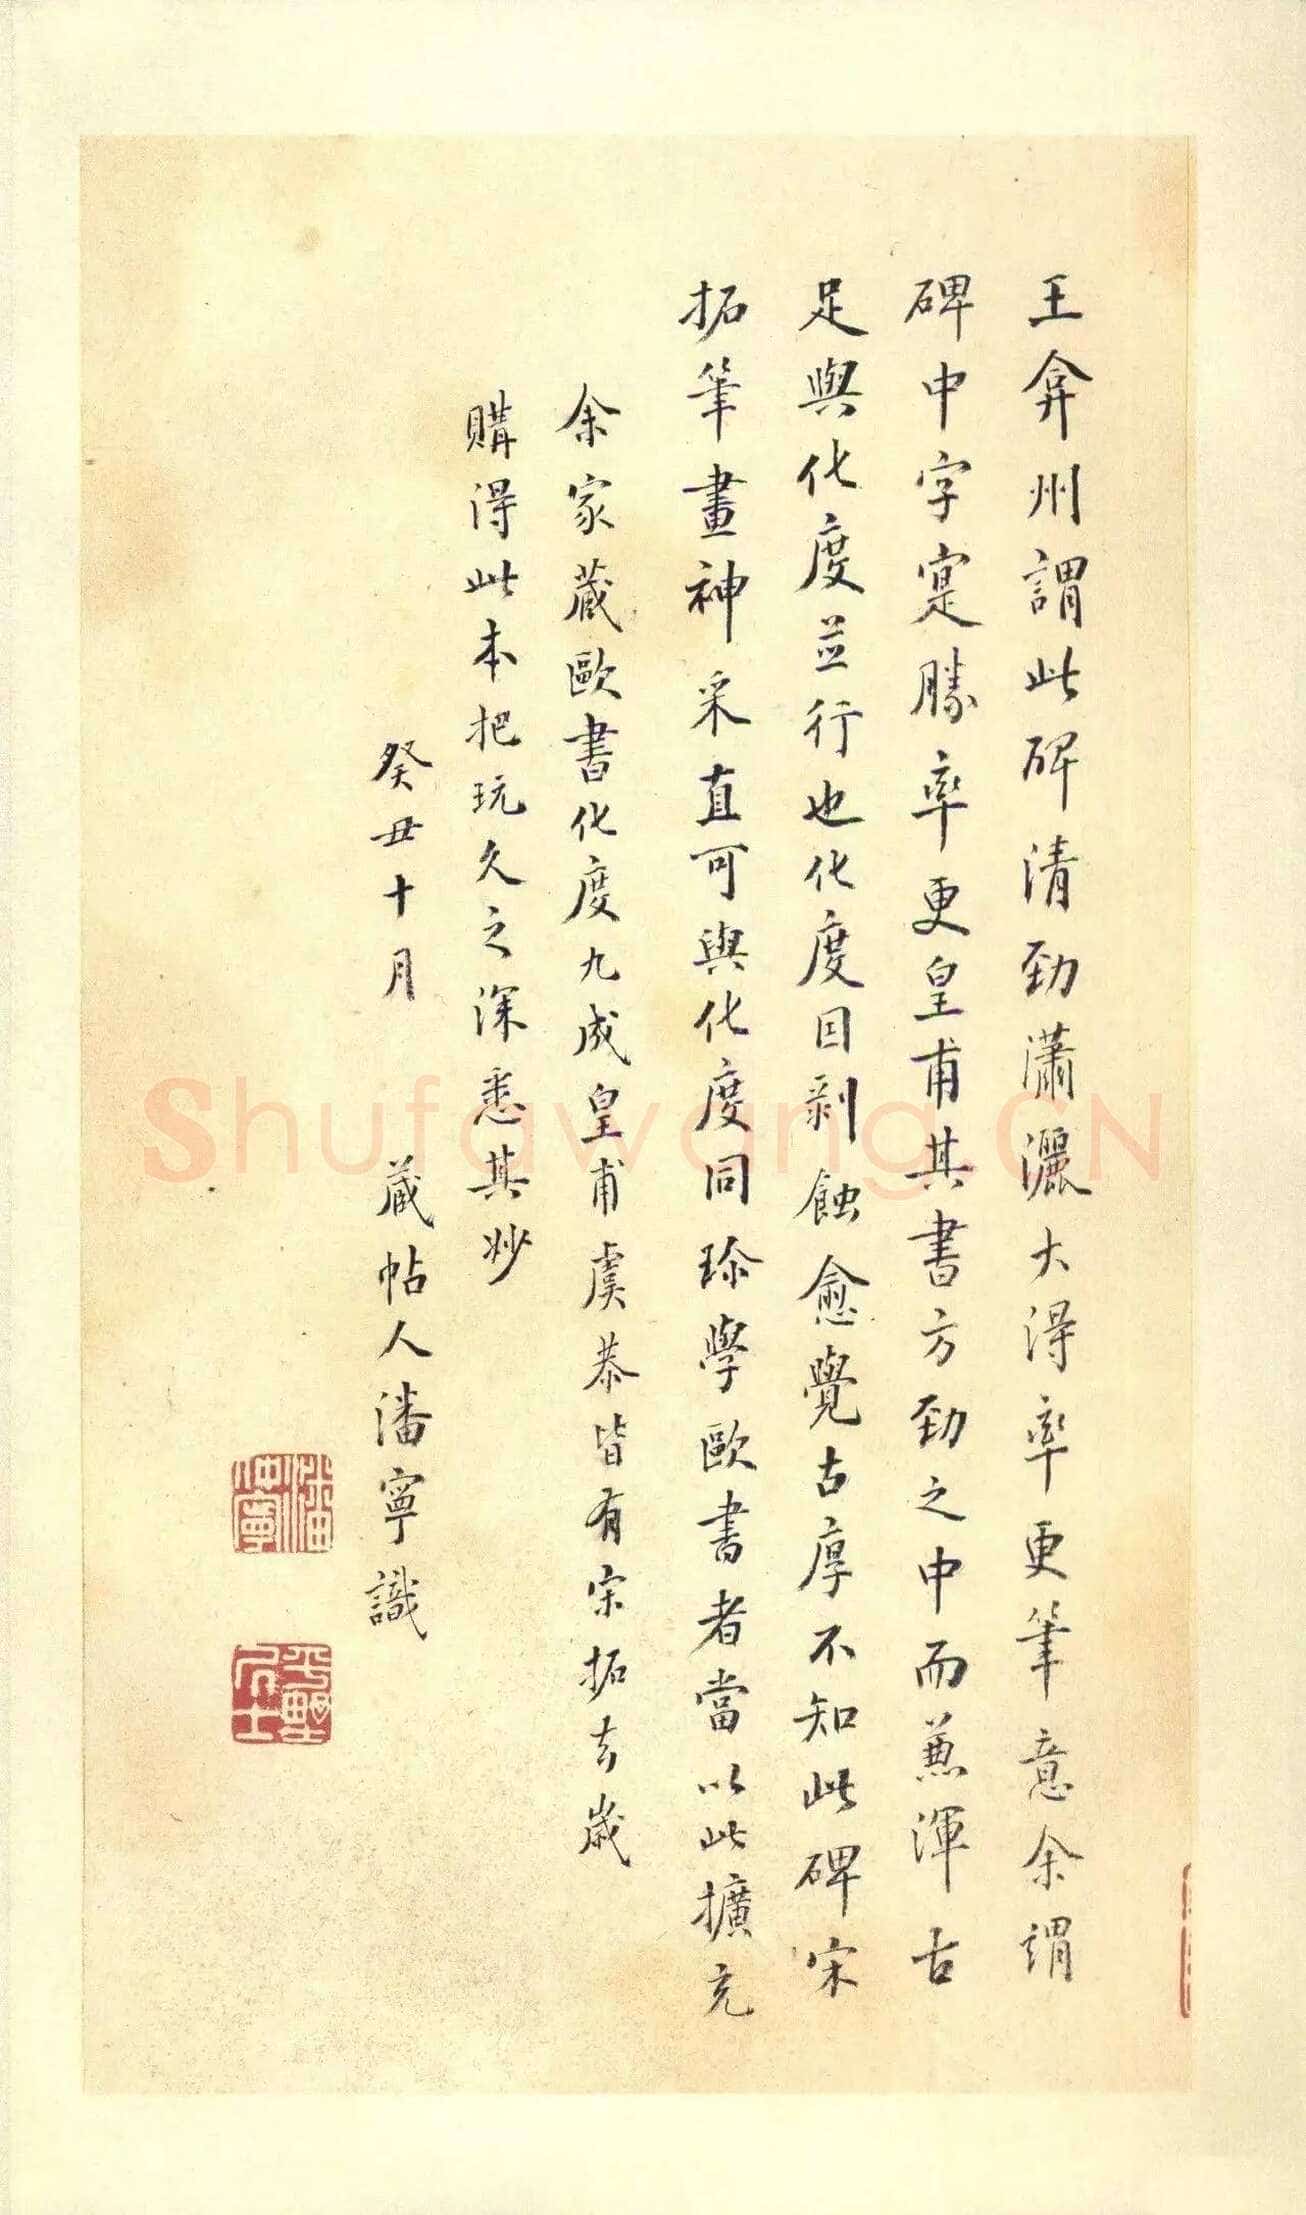 王弇州謂此碑清勁瀟灑大得率更筆意余謂
碑中字寔勝率更皇甫其書方勁之中而兼渾古
足與化度並行也化度因剥蝕愈覺古厚不知此碑宋
拓筆畫神采直可與化度同珍學歐書者當以此擴充
余家藏歐書化度九成皇甫虞恭皆有宋拓去歲
購得此本把玩久之深悉其妙
癸丑十月 藏帖人潘寧識
潘寧
平野居士
Shufawang.CN